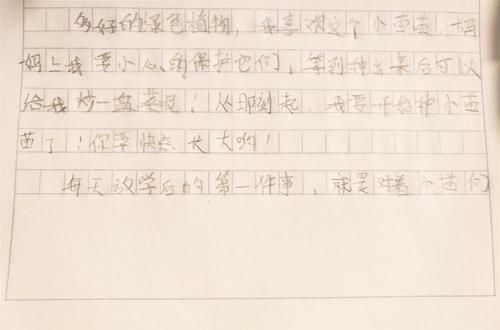 多好的绿色植物，我喜欢这个小苗苗，妈
妈上我要小心的保护它们，等到种出来后可以
给我炒一盘菜吃！从那刻起，我要开始种小苗
苗了！你要快点长大哟！
每天放学后的第一件事，就是对着小苗们